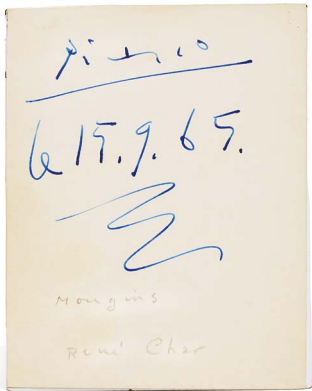 Picasso
le 15.9.65.
Mougins
René Char